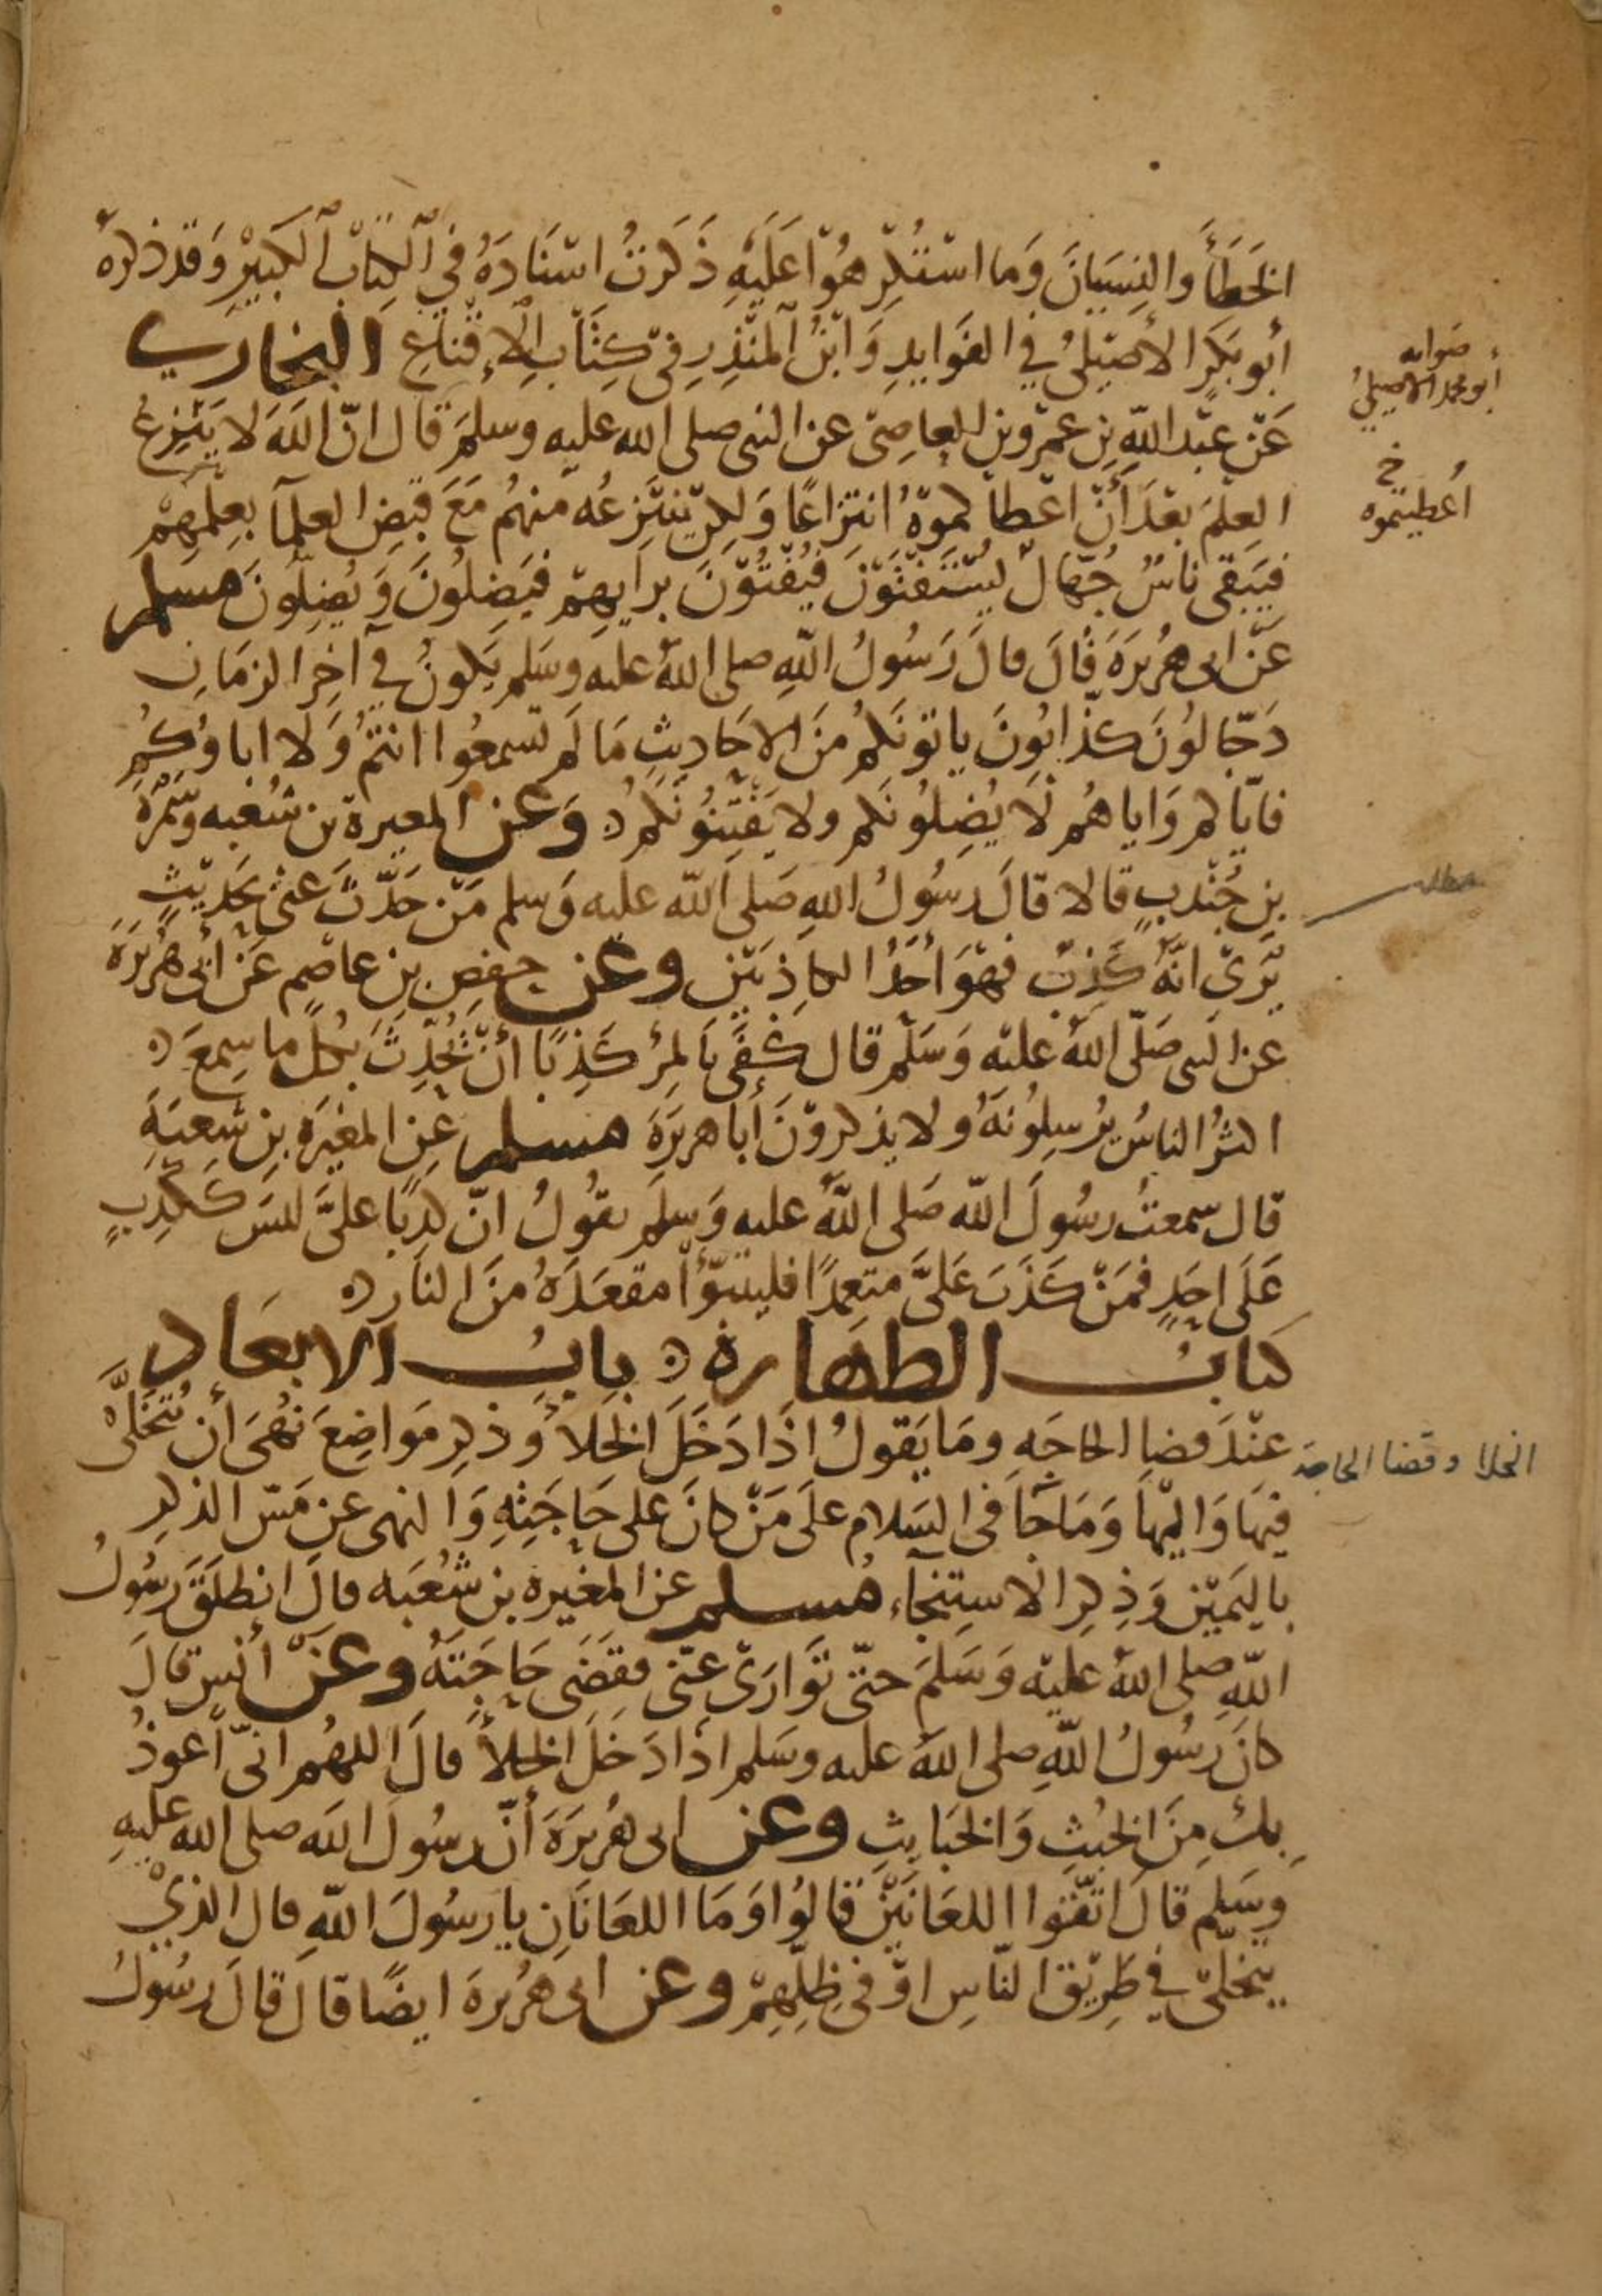 الخَطَأَ وَالنِسيَانَ وَمَا اسْتُكْرِهُوْا عَلَيْهِ ذَكَرتُ اسْنَادَهُ فِي الْكِتَابْ الكَبِيْرِ وَقَدْ ذكرهُ
أبُو بَكرَ الأصِيْلىُ فِي الفَوَايدِ وَابْنُ الْمُنْذِرِ فِيْ كِتَابِ الإِقْنَاعِ البخاري
صوابه
أبو محمد الاصيليُ
عَنْ عَبْد اللّهِ بْنِ عَمْرو بن العاصِىْ عن النبى صلى الله عليه وسلمَ قَال انّ اللهَ لا يَنْزِعُ
العِلمَ بَعْدَ أَنْ اعْطاكموْهُ انتزاعًا وَلكِن يَنْتَزِعُه منهُم مَعَ قَبضِ العلمآ بعِلمِهِمْ
خ
أعطيتموه
فيَبقى نَاسٌ جُهّالٌ يُسْتَفْتَوْنَ فيُفْتُوْنَ برايهِمْ فيَضِلُونَ وَيُضِلُّونَ مسلم
عَنْ ابى هُرَيرَةَ قَالَ قالَ رَسُولُ اللّهِ صلى اللهُ عليه وسَلم يَكونُ فِي آخِر الزمَانِ
دَجّالُونَ كذّابُونَ يَاتونَكمُ منَ الاحَاديثِ مَا لَم تسمعُوا انتُمُ وَلا اباؤكُم
فَايّاكم وَاياهُم لَا يُضِلُونَكم ولا يَفْتِنُونَكُم وَعَن المغيرة بن شُعبه وسَمُرَةَ
بنِ جُنْدبٍ قالا قالَ رسُولُ اللهِ صَلى اللّه عليه وَسلم مَنْ حَدَّثَ عَنّى بحَديْثٍ
مطلب
يُرَىْ انَّهُ كَذِبٌ فَهْوَ أحَدُ الكاذِبَيْنِ وعن حفصِ بنِ عاصِم عَن أبى هُرَيرَةَ
عن النبى صَلّى اللهُ عليْه وَسَلّم قَال كَفَى بَالمرْءِ كَذِبًا أنْ يُحَدّثَ بكل ما سِمعَ
اكثرُ الناسُ يُرسِلُونَهُ ولا يذكروْنَ أبا هريرَةَ مسلم عن المغيرَة بنِ شعبَةَ
قال سمعتُ رسُولَ اللّه صَلى اللّهُ عليه وَسلَم يقُولُ انّ كذِبًا علىَّ ليسَ كَكَذِبٍ
عَلَى احَدٍ فمَنْ كَذَبَ عَلىَّ متعمِدًا فليتبوّأ مقعَدَهُ منَ النارِ
كتابُ الطهَارة بابُ الابعَاد
عنْدَ قضا الحَاجَه وَمَا يَقولُ اذَا دَخَلَ الخَلاَ وَذِكِر مَواضِعَ نُهىَ أن يُتَخَلَّىْ
الخلا وقضا الحاجة
فِيهَا وَاليْهَا وَمَا جَا فى السَلام علَى مَنْ كانَ على حَاجَتِهِ وَالنهى عَن مَسّ الذكرِ
باليَمِيْنِ وَذِكرِ الاسْتِنجآءِ مُسلم عن المغيرة بن شُعْبَه قالَ انطَلَقَ رسُولُ
اللّهِ صلى اللهُ عليْه وَسَلمَ حتّى تَوَارَىْ عَنّى فقَضَى حَاجَتَهُ وعَنْ أنسٍ قَالَ
كانَ رَسُولُ اللّهِ صلى اللهُ عليه وسَلم اذَا دَخَلَ الخلاَ قالَ اللهُم انىّ أعوذُ
بِكَ مِنَ الخبُثِ وَالخبَايثِ وعَن ابى هُرَيرَةَ أنّ رسُولَ اللّه صلى الله عليهِ
وسَلم قَالَ اتّقوا اللعَانَيْنِ قالُوا وَمَا اللعَانَانِ يا رسُولَ اللّهِ قال الذيْ
يتَخلّى في طَرِيْقِ النّاسِ اوْ فى ظِلِّهِمْ وعن ابى هُرَيرةَ ايضًا قالَ قالَ رسُولُ